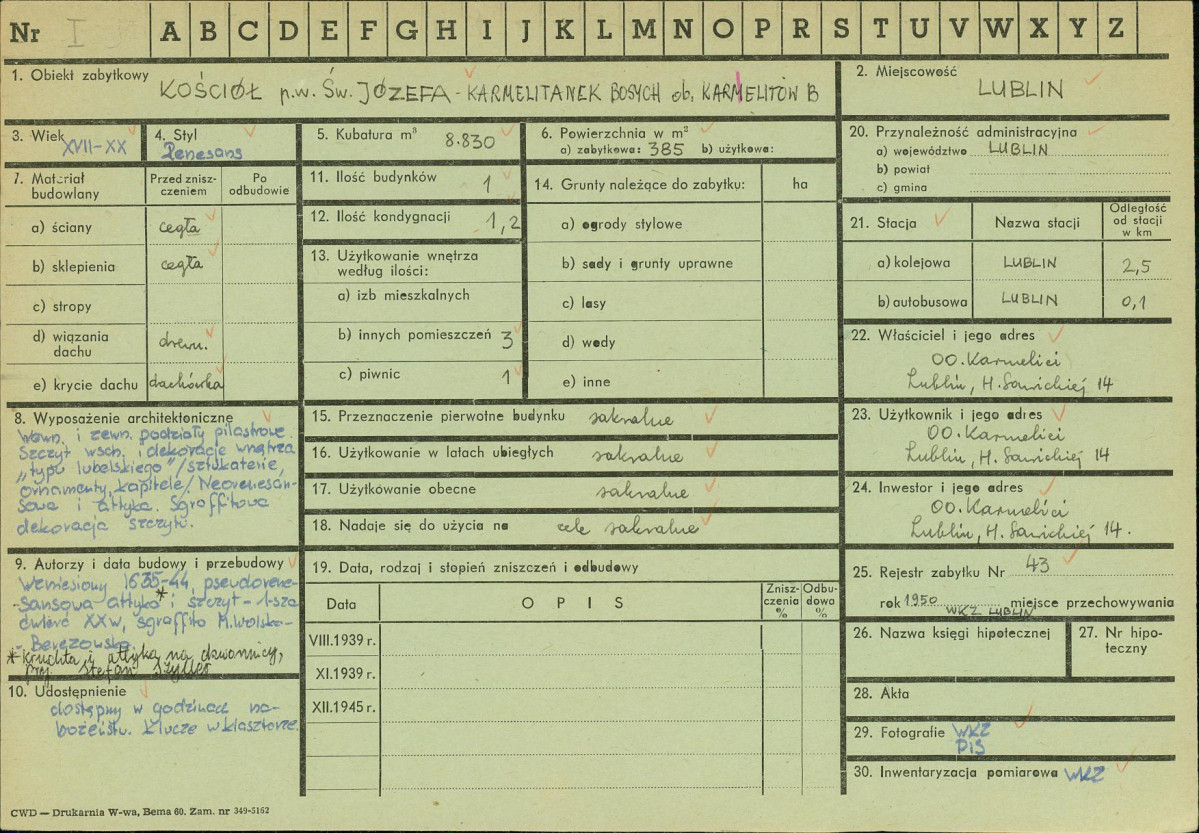 Nr I A B C D E F G H I J K L M N O P R S T U V W X Y Z
1. Obiekt zabytkowy KOŚCIÓŁ p.w. Św. JÓZEFA - KARMELITANEK BOSYCH ob. KARMELITÓW B
2. Miejscowość LUBLIN
3. Wiek XVII-XX
4. Styl Renesans
5. Kubatura m³ 8.830
6. Powierzchnia w m²
a) zabytkowa: 385 b) użytkowa:
20. Przynależność administracyjna
a) województwo LUBLIN
b) powiat
c) gmina
7. Materiał budowlany
Przed zniszczeniem
Po odbudowie
a) ściany cegła
b) sklepienia cegła
c) stropy
d) wiązania dachu drewn.
e) krycie dachu dachówka
11. Ilość budynków 1
12. Ilość kondygnacji 1,2
13. Użytkowanie wnętrza
według ilości:
a) izb mieszkalnych
b) innych pomieszczeń 3
c) piwnic 1
14. Grunty należące do zabytku: ha
a) ogrody stylowe
b) sady i grunty uprawne
c) lasy
d) wody
e) inne
21. Stacja Nazwa stacji Odległość od stacji w km
a) kolejowa LUBLIN 2,5
b) autobusowa LUBLIN 0,1
22. Właściciel i jego adres
OO. Karmelici
Lublin, H. Sawickiej 14
8. Wyposażenie architektoniczne
Wewn. i zewn. podziały pilastrowe.
Szczyt wsch. i dekoracje wnętrza
„typu lubelskiego"/sztukaterie,
ornamenty, kapitele/ Neorenesan-
sowa i attyka. Sgraffitowa
dekoracja szczytu.
15. Przeznaczenie pierwotne budynku sakralne
16. Użytkowanie w latach ubiegłych sakralne
17. Użytkowanie obecne sakralne
18. Nadaje się do użycia na cele sakralne
23. Użytkownik i jego adres
OO. Karmelici
Lublin, H. Sawickiej 14
24. Inwestor i jego adres
OO. Karmelici
Lublin, H. Sawickiej 14.
9. Autorzy i data budowy i przebudowy
Wzniesiony 1635-44, pseudorene-
-sansowa attyka* i szczyt - 1-sza
ćwierć XXw, sgraffito M. Wolska-
- Berezowska.
* Kruchta i attyka na dzwonnicy,
proj. Stefan Szyller
10. Udostępnienie
dostępny w godzinach na-
bożeństw. Klucze w klasztorze.
19. Data, rodzaj i stopień zniszczeń i odbudowy
Data OPIS Zniszczenia % Odbudowa %
VIII.1939 r.
XI.1939 r.
XII.1945 r.
25. Rejestr zabytku Nr 43
rok 1950 miejsce przechowywania
WKZ LUBLIN
26. Nazwa księgi hipotecznej
27. Nr hipoteczny
28. Akta
29. Fotografie WKZ
PIS
30. Inwentaryzacja pomiarowa WKZ
CWD — Drukarnia W-wa, Bema 60. Zam. nr 349-5162